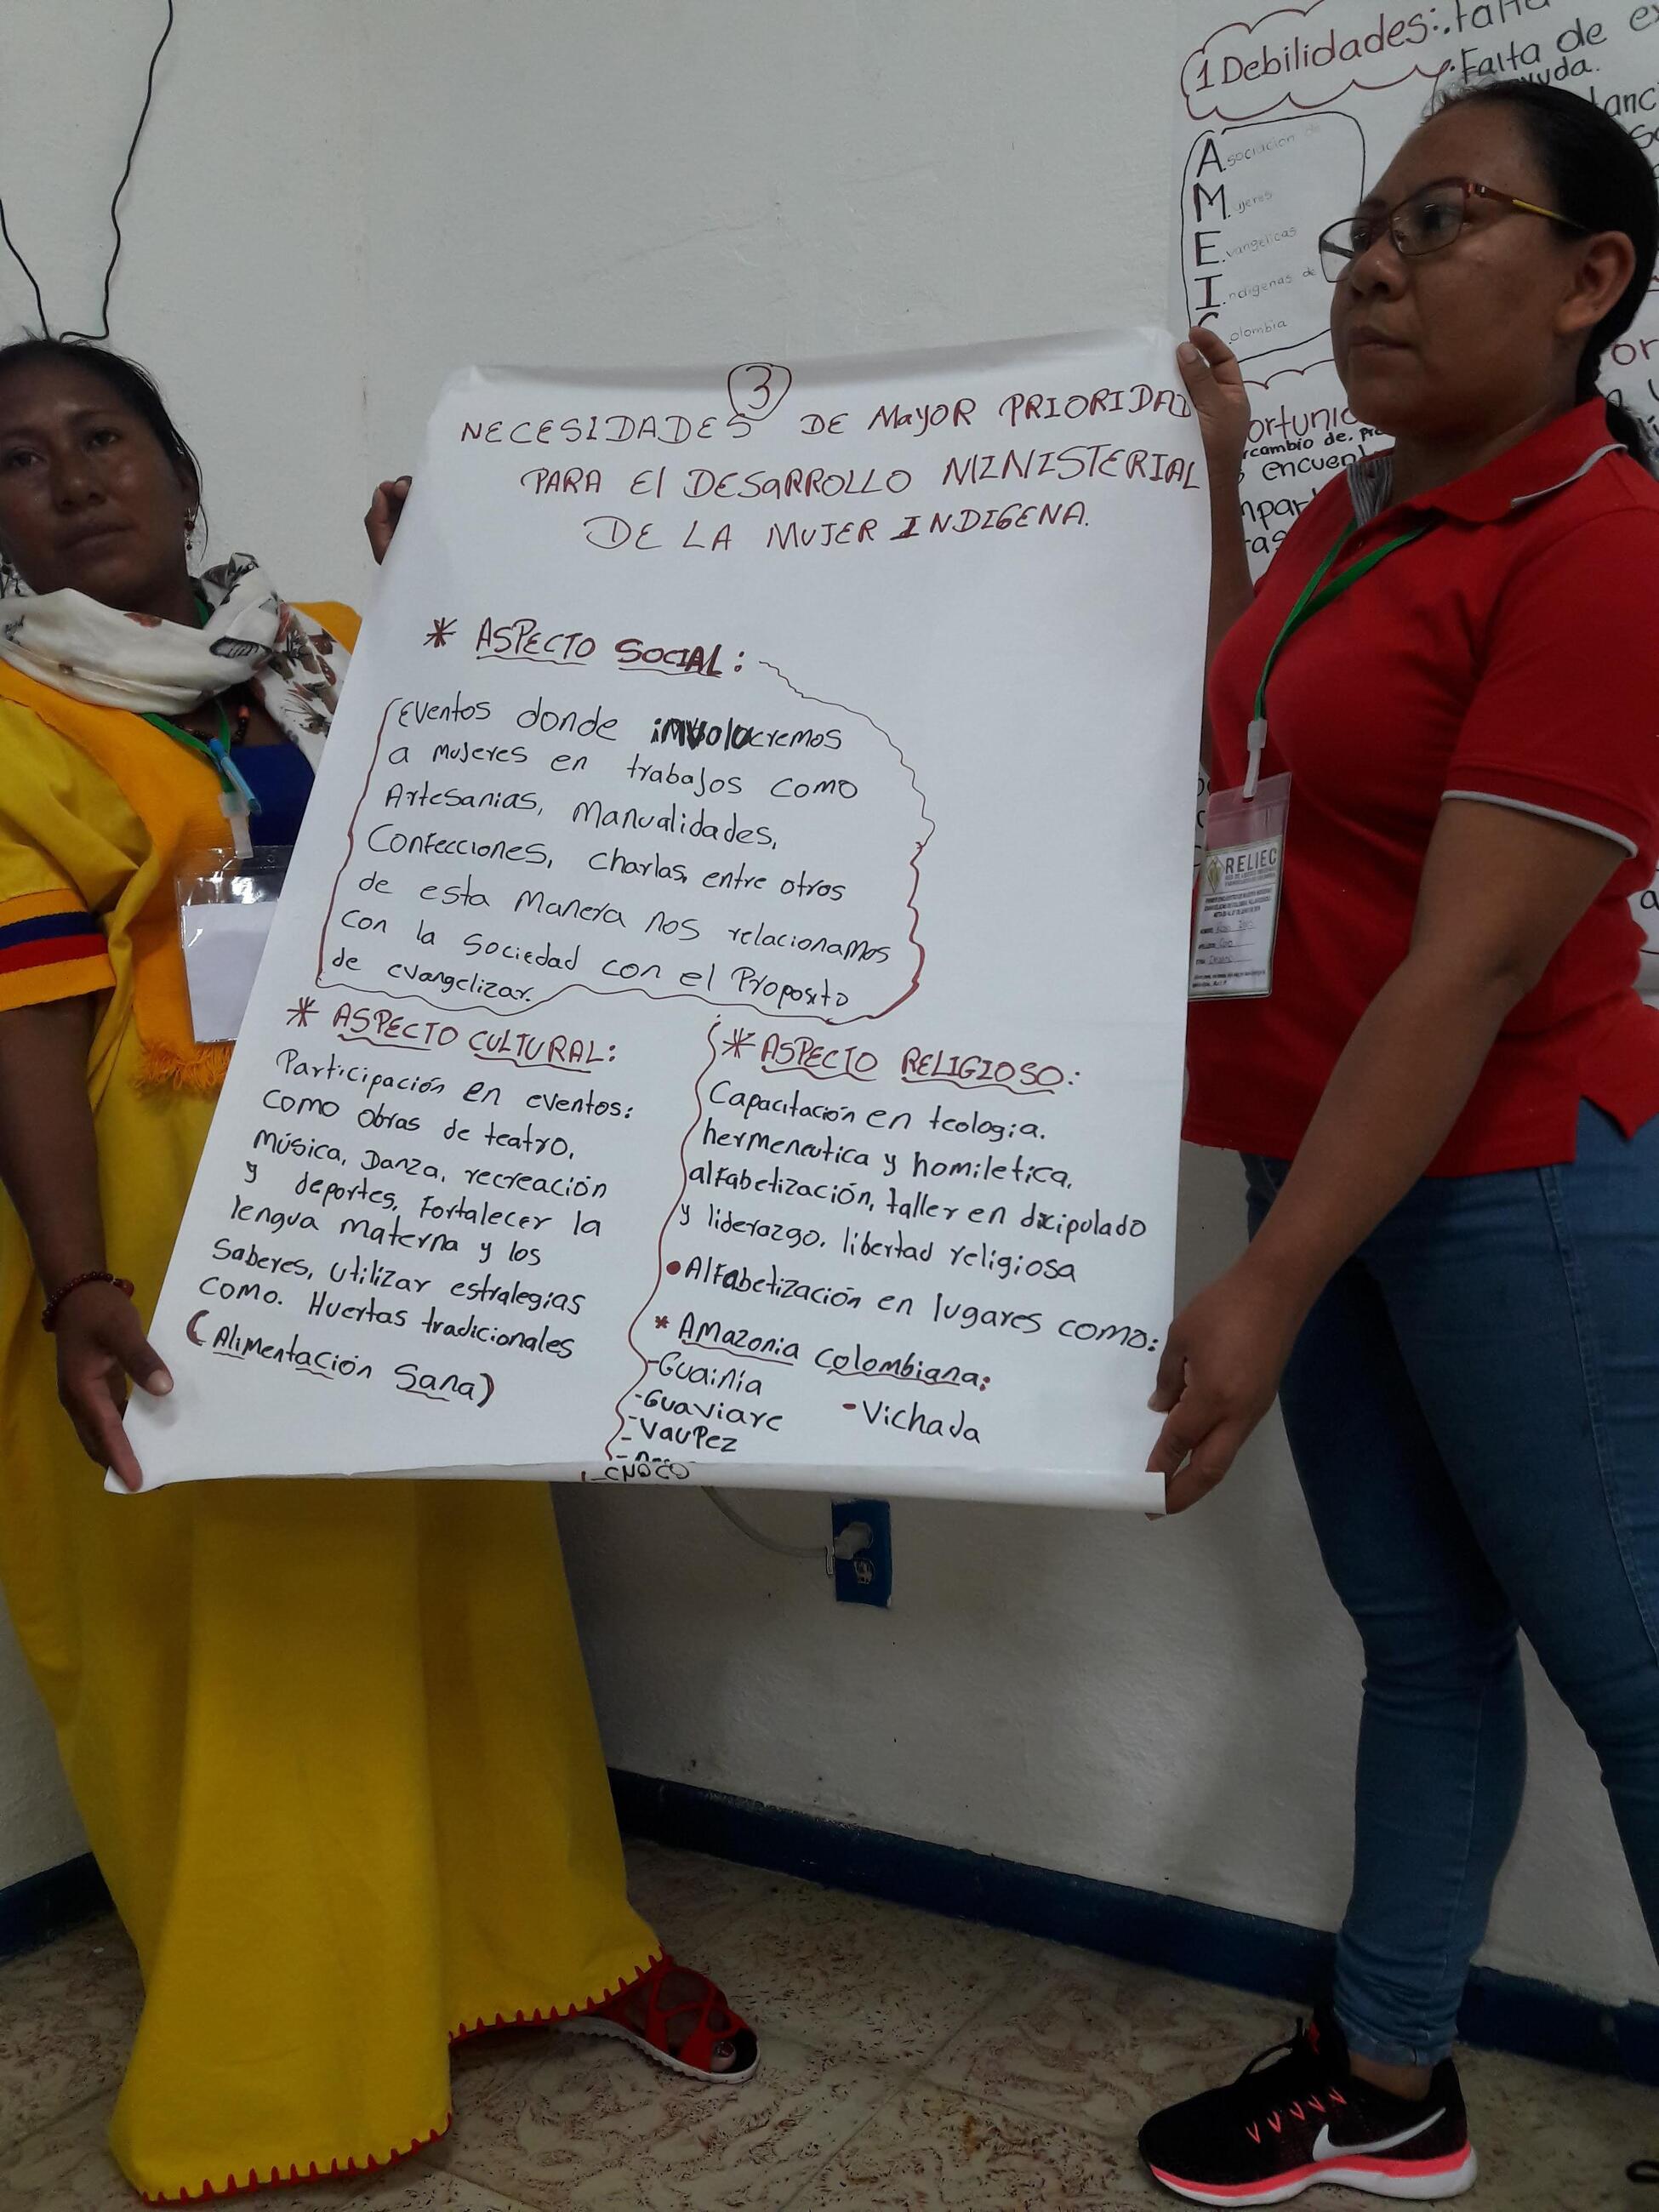 3
NECESIDADES DE MAYOR PRIORIDAD
PARA El DESARROLLO MINISTERIAL
DE LA MUJER INDIGENA.
* ASPECTO SOCIAL:
Eventos donde involocremos
a mujeres en trabajos como
Artesanias, Manualidades,
Confecciones, charlas, entre otros
de esta Manera nos relacionamos
con la sociedad con el Proposito
de evangelizar.
* ASPECTO CULTURAL:
Participación en eventos:
como obras de teatro,
Música, Danza, recreación
y deportes, Fortalecer la
lengua materna y los
Saberes, utilizar estralegias
como. Huertas tradicionales
(Alimentación Sana)
* ASPECTO RELIGIOSO:
Capacitación en teologia.
hermeneutica y homiletica,
alfabetización, taller en dicipulado
y liderazgo. libertad religiosa
• Alfabetización en lugares como:
* Amazonia Colombiana:
-Guainia
-Guaviare •Vichada
-VauPez
-CHOCO
1 Debilidades:
Falta de
Asociación de
Mujeres
Evangelicas
Indigenas de
Colombia
encuent
RELIEC